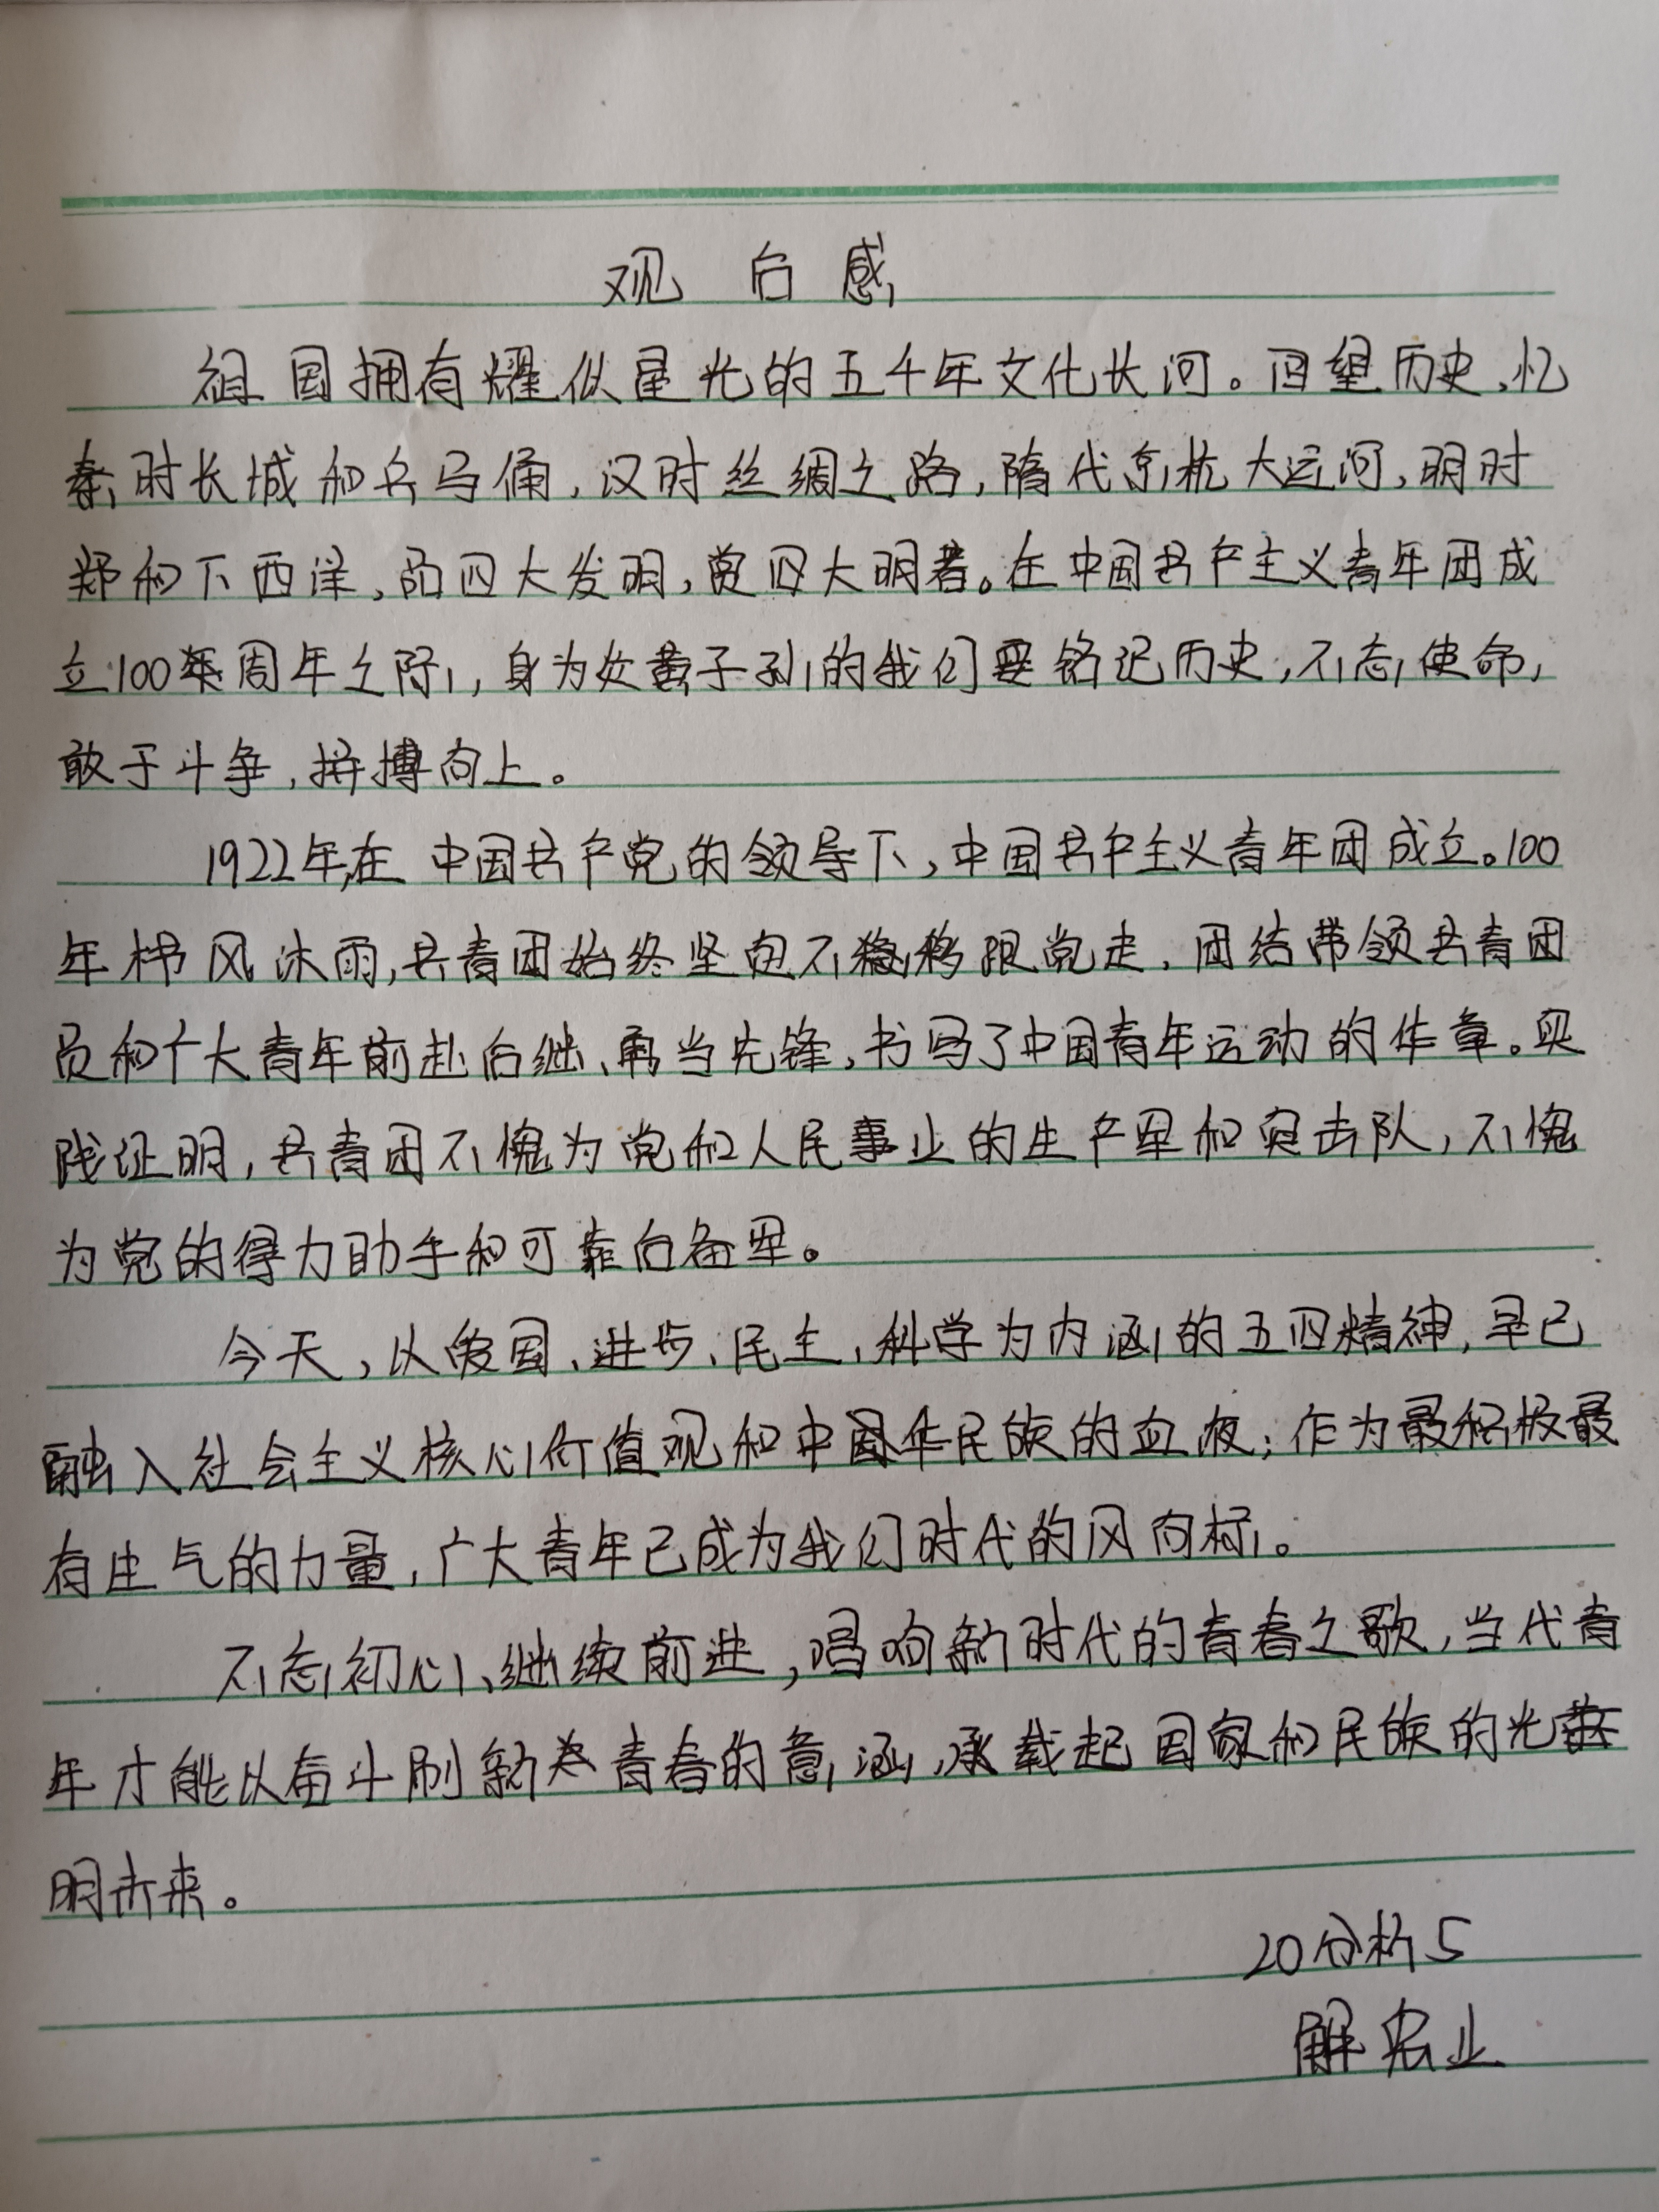 观后感
祖国拥有耀似星光的五千年文化长河。回望历史,忆
秦时长城和兵马俑,汉时丝绸之路,隋代京杭大运河,明时
郑和下西洋,品四大发明,赏四大名著。在中国共产主义青年团成
立100周年之际,身为炎黄子孙的我们要铭记历史,不忘使命,
敢于斗争,拼搏向上。
1922年,在中国共产党的领导下,中国共产主义青年团成立。100
年栉风沐雨,共青团始终坚定不移跟党走,团结带领共青团
员和广大青年前赴后继、勇当先锋,书写了中国青年运动的华章。实
践证明,共青团不愧为党和人民事业的生产军和突击队,不愧
为党的得力助手和可靠后备军。
今天,以爱国、进步、民主、科学为内涵的五四精神,早已
融入社会主义核心价值观和中华民族的血液;作为最积极最
有生气的力量,广大青年已成为我们时代的风向标。
不忘初心、继续前进,唱响新时代的青春之歌,当代青
年才能以奋斗刷新青春的意涵,承载起国家和民族的光
明未来。
20分析5
解宏业